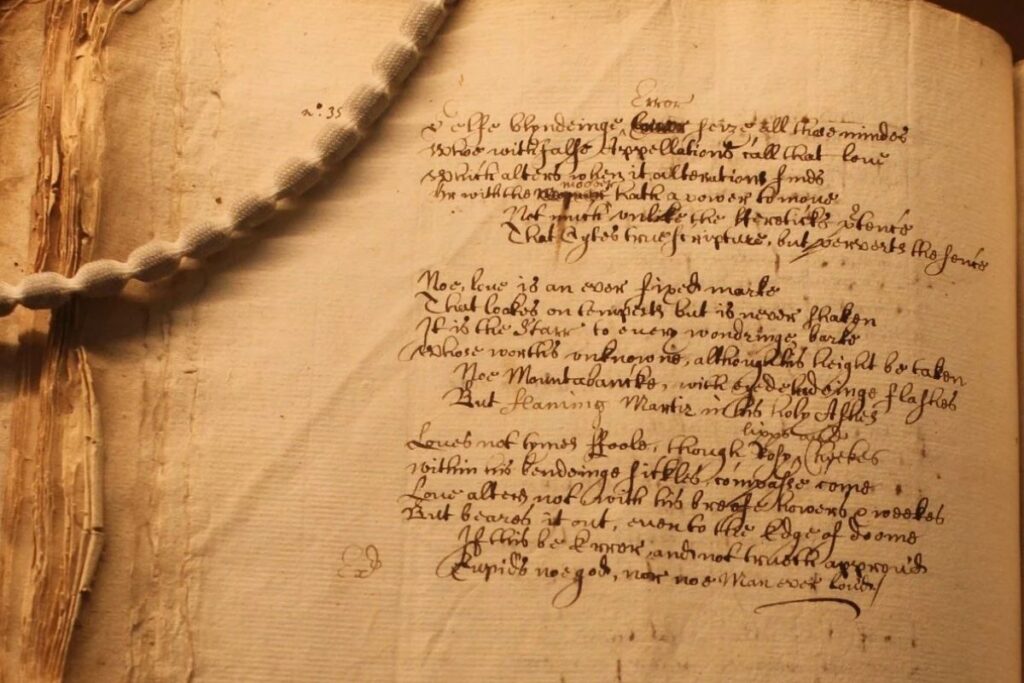 n°. 35
Error
Selfe blyndeinge seize all those mindes
Who with false Appellations call that love
Which alters when it alterations finds
moover
Or with the hath a power to move
Not much unlike the Hereticks p̱tence
That Cytes true scripture, but perverts the sence
Noe, love is an ever fixed marke
That lookes on tempests but is never shaken
It is the Starr to every wondringe barke
Whose worths unknowne, although his height be taken
Noe Mountabancke, with eye deludeinge flashes
But flaming Martir in his holy Ashes
lipps and
Loves not tymes ffoole, though Rosy Cheekes
within his bendeinge sickles, compasse come
Love alters not with his breefe howers & weekes
But beares it out, even to the Edge of doome
If this be Error, and not trueth approu'd
Cupids noe god, nor noe Man ever loved